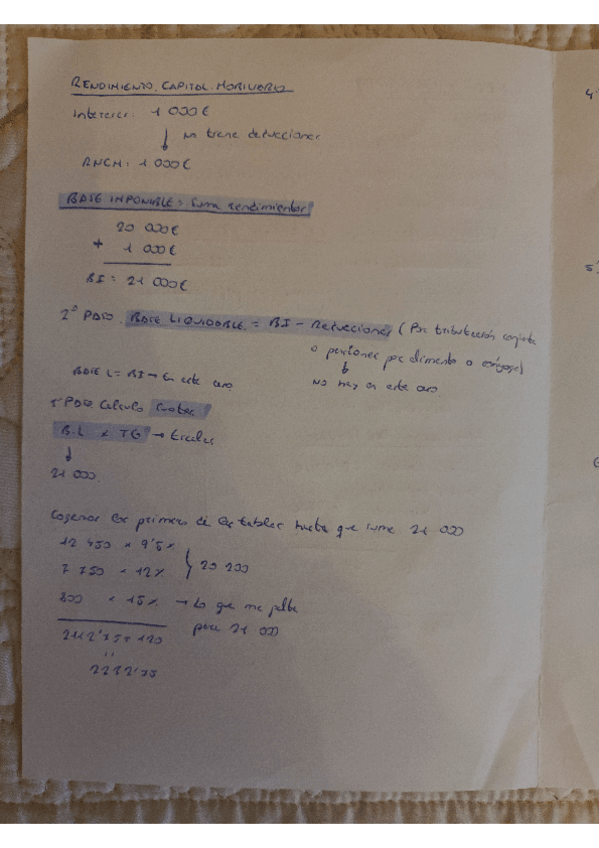 RENDIMIENTO CAPITOL MOBILIARIO
Intereses: 1 000€
↓ No tiene deducciones
RNCM: 1 000€
BASE IMPONIBLE = Suma rendimientos
20 000€
+ 1 000€
BI = 21 000€
2º PASO. BASE LIQUIDABLE = BI - Reducciones (Por tributación conjunta
o pensiones por alimento o cónyuge)
↓
BASE L = BI → En este caso No hay en este caso.
PASO Calculo Cuotas
B.L x TG → Escalas
↓
21 000.
Cogemos los primeros de las tablas hasta que sume 21 000
12 450 x 9'5%
7 750 x 12% } 20 200
800 x 15% → Lo que me falta
para 21 000
2112'75 + 120
=
2232'75
4
5
6